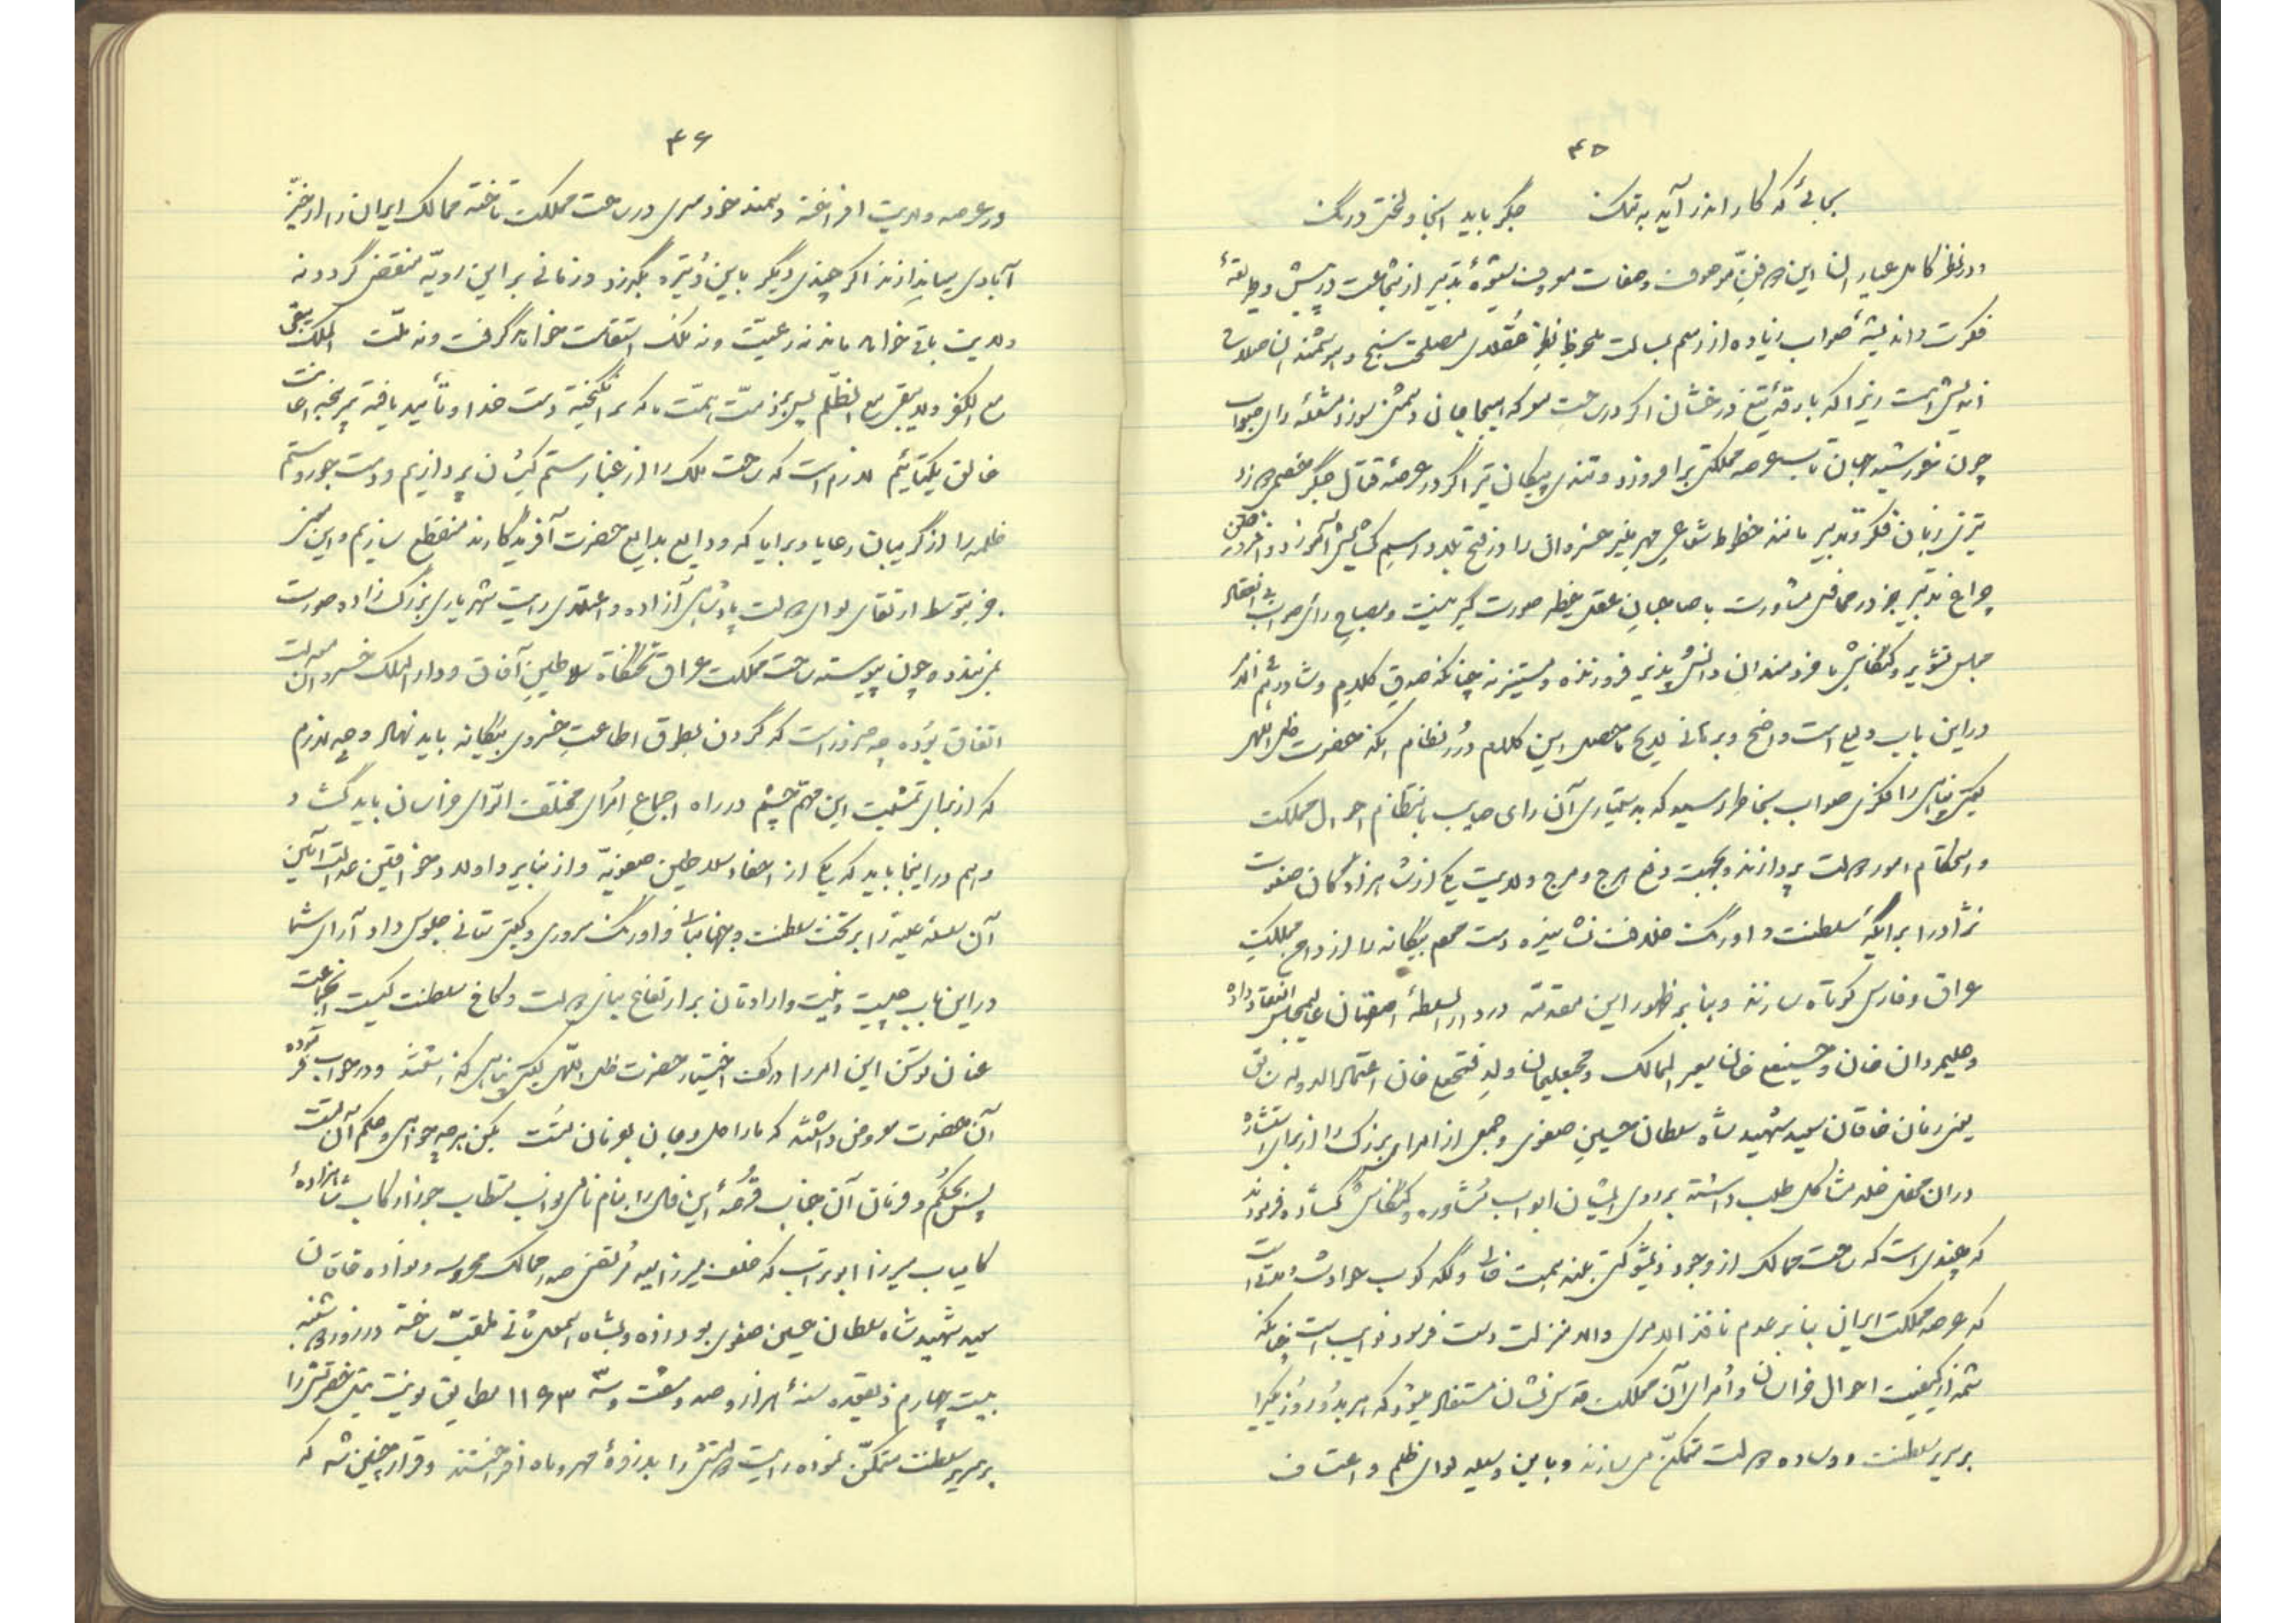 ۴۵
بجائیکه کار اندر آید به تنگ جگر باید آنجا و لختی درنگ
و در نظر کامل عیار این موصوف و صفات معروف شیوهٔ تدبیر از شجاعت در پیش و طریقهٔ
فکرت و اندیشهٔ صواب زیاده از رسم بسالت ملحوظ نظر عقلای مصلحت سنج و هوشمندان صلاح
اندیش است زیرا که بارقهٔ تیغ درخشان اگر در ساحت معرکه هیجا جان دشمن سوزد مشعلهٔ رای صواب
چون خورشید جهان تاب عرصه مملکتی برافروزد و تندی پیکان تیر اگر در عرصهٔ قتال جگر خصمی درد
تیزی زبان فکر و تدبیر مانند خطوط شعاعی مهر منیر خسروان را در فتح بلاد رسم کشایش آموزد و افروختن
چراغ تدبیر جز در محافل مشاورت با صاحبان عقل خطیر صورت گیر نیست و مصباح رای صواب
مجلس تشویر و کنکاش با خردمندان دانش پذیر فروزنده و مستنیر نه چنانکه صدق کلام و شاورهم فی الامر
در این باب دلیلی است واضح و برهانی لایح ماحصل این کلام درر نظام آنکه حضرت ظل اللهی
گیتی پناهی را فکری صواب بخاطر رسید که بدستیاری آن رای صایب بانتظام احوال مملکت
و استحکام امور دولت پردازند و بجهت رفع هرج و مرج ولایت یکی از شاهزادگان صفوت
نژاد را بر اریکهٔ سلطنت و اورنگ خلافت نشانیده دست طمع بیگانه را از دامن مملکت
عراق و فارس کوتاه سازند و بنا بر ظهور این مقدمه در دار السلطنهٔ اصفهان مجلس انعقاد داده
و علیمردان خان و حسینعلی خان معیر الممالک و محمد سلیمان ولد فتحعلی خان اعتماد الدوله سابق
یعنی زمان خاقان سعید شهید شاه سلطان حسین صفوی و جمعی از امرای بزرگ را از برای استشاره
در آن محفل خلد مشاکل طلب داشته بر روی ایشان ابواب مشاوره و کنکاش گشاده فرمودند
که چندی است که ساحت ممالک از وجود ذیشوکتی بلند همت خالی و لگد کوب حوادث است
که عرصه مملکت ایران بنا بر عدم نافذ الامری والا منزلت دست فرسود نوایب است چنانکه
شمه از کیفیت احوال خراسان و امرای آن مملکت و سرکشان مستفاد میشود که هر بدو روز یکی را
بر سریر سلطنت و وساده دولت متمکن می سازند و باین وسیله لوای ظلم و اعتساف
۴۶
در عرصه ولایت افراخته و سمند خودسری در ساحت مملکت تاخته ممالک ایران را از حیّز
آبادی میاندازند اگر چندی دیگر باین وتیره بگذرد و زمانی بر این رویّه منقضی گردد نه
ولایت باقی خواهد ماند نه رعیّت و نه ملک استقامت خواهد گرفت و نه ملّت الملک یبقی
مع الکفر و لا یبقی مع الظلم پس بر ذمّت همّت ما که برانگیختهٔ دست خدا و تأیید یافته
خالق یکتائیم لازم است که ساحت ملک را از غبار ستم کیشان پردازیم و دست جور و ستم
ظلمه را از گریبان رعایا و برایا که ودایع بدایع حضرت آفریدگارند منقطع سازیم و این معنی
جز بتوسط ارتقای لوای دولت پادشاهی آزاده و اعتلای رایت شهریاری بزرگ زاده صورت
نمی‌بندد و چون پیوسته ساحت مملکت عراق تختگاه سلاطین آفاق و دار الملک خسروان
اتفاق بوده چه ضرور است که گردن بطوق اطاعت خسروی بیگانه باید نهاد و چه لازم
که از برای تمشیت این مهم چشم در راه اجماع امرای مختلفت الرّای خراسان باید گشاد
و هم در اینجا باید که یکی از احفاد سلاطین صفویّه و از نبایر و اولاد خواقین عدالت آئین
آن سلسله علیّه را بر تخت سلطنت و جهانبانی و اورنگ سروری و گیتی ستانی جلوس داد آرای شما
در این باب چیست و نیّت و ارادتان بر ارتفاع بنای دولت و کاخ سلطنت کیست آنجماعت
عنان توسن این امر را در کف اختیار حضرت ظل اللهی گیتی پناهی گذاشتند و در جواب
آن حضرت معروض داشتند که ما را دل و جان بفرمان تست بکن هر چه خواهی و حکم آن تست
پس بحکم و فرمان آن جناب قرعهٔ این فال را بنام نامی نواب مستطاب جوزا رکاب شاهزادهٔ
کامیاب میرزا ابوتراب که خلف میرزا سید مرتضی صدر ممالک محروسه و نواده خاقان
سعید شهید شاه سلطان حسین صفوی بود زده و بشاه اسمعیل ثانی ملقب ساخته در روز
بیست چهارم ذیقعده سنهٔ هزار و صد و شصت و سه ۱۱۶۳ مطابق یونت ئیل
بر سریر سلطنت متمکّن نموده رایت دولتش را بذروهٔ مهر و ماه افراختند و قرار چنین شد که